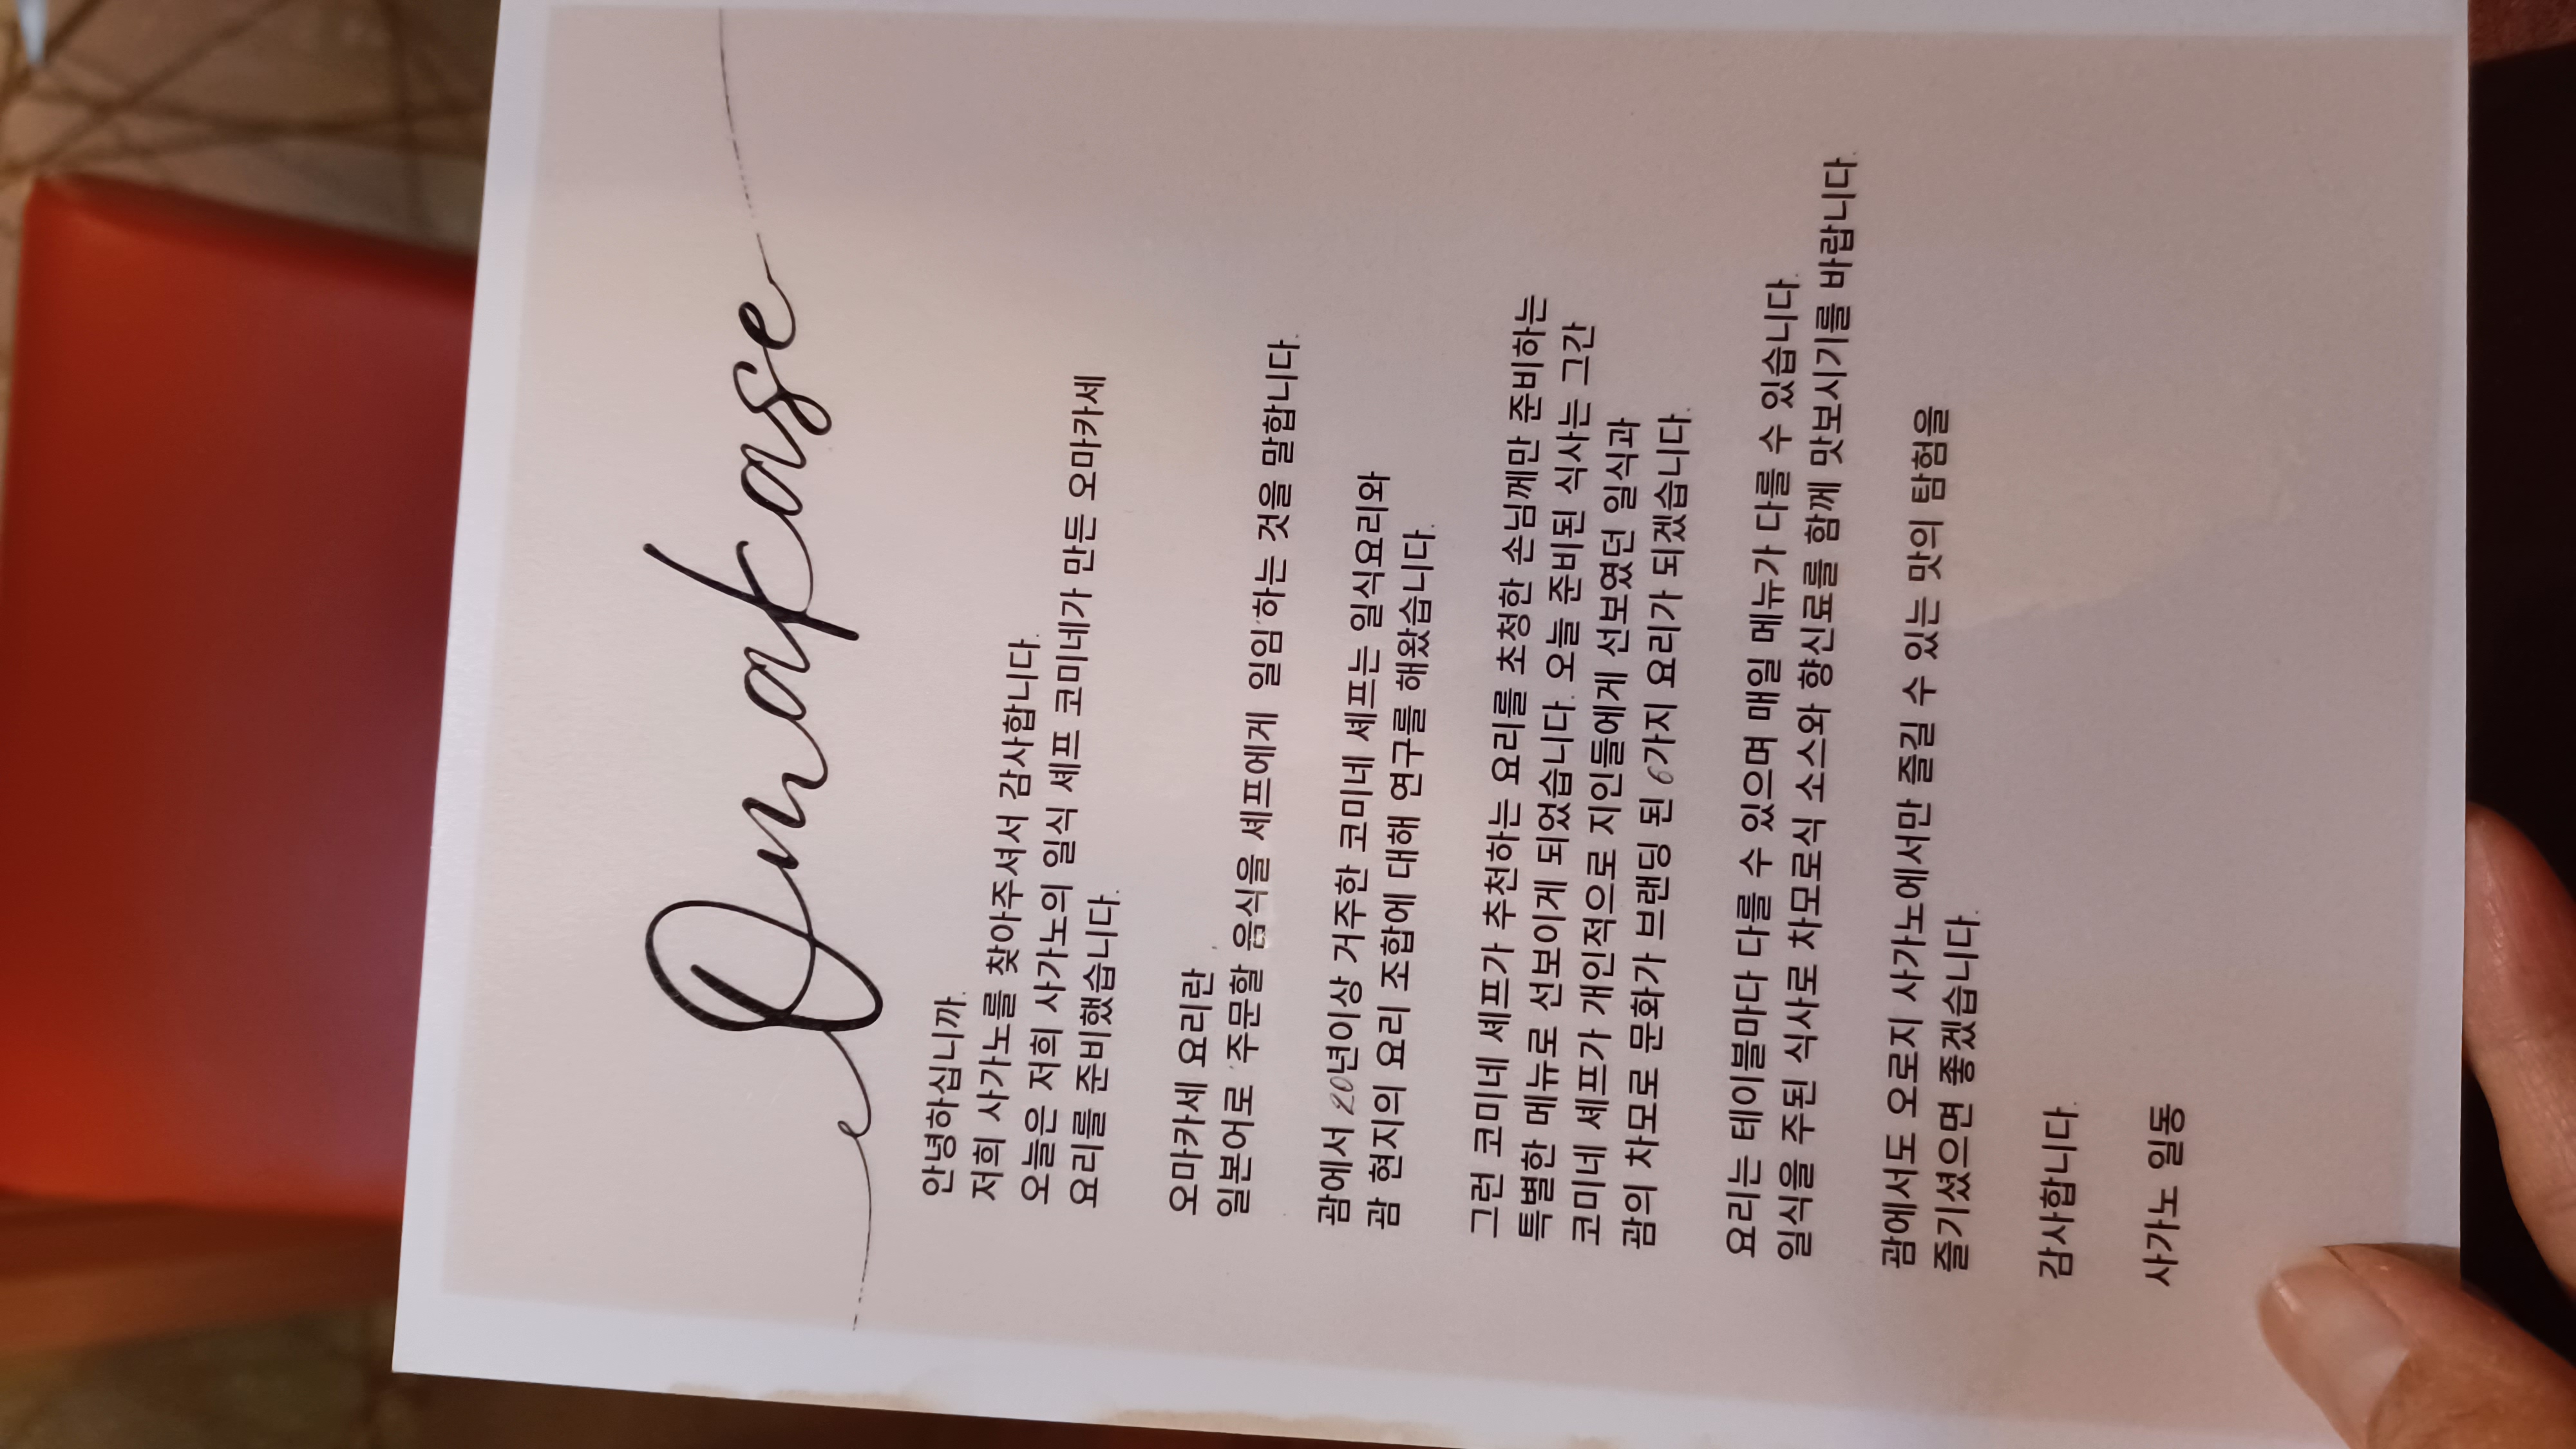 Omakase
안녕하십니까.
저희 사가노를 찾아주셔서 감사합니다.
오늘은 저희 사가노의 일식 셰프 코미네가 만든 오마카세
요리를 준비했습니다.
오마카세 요리란
일본어로 '주문할 음식을 셰프에게 일임'하는 것을 말합니다.
괌에서 20년이상 거주한 코미네 셰프는 일식요리와
괌 현지의 요리 조합에 대해 연구를 해왔습니다.
그런 코미네 셰프가 추천하는 요리를 초청한 손님께만 준비하는
특별한 메뉴로 선보이게 되었습니다. 오늘 준비된 식사는 그간
코미네 셰프가 개인적으로 지인들에게 선보였던 일식과
괌의 차모로 문화가 브랜딩 된 6가지 요리가 되겠습니다.
요리는 테이블마다 다를 수 있으며 매일 메뉴가 다를 수 있습니다.
일식을 주된 식사로 차모로식 소스와 향신료를 함께 맛보시기를 바랍니다.
괌에서도 오로지 사가노에서만 즐길 수 있는 맛의 탐험을
즐기셨으면 좋겠습니다.
감사합니다.
사가노 일동